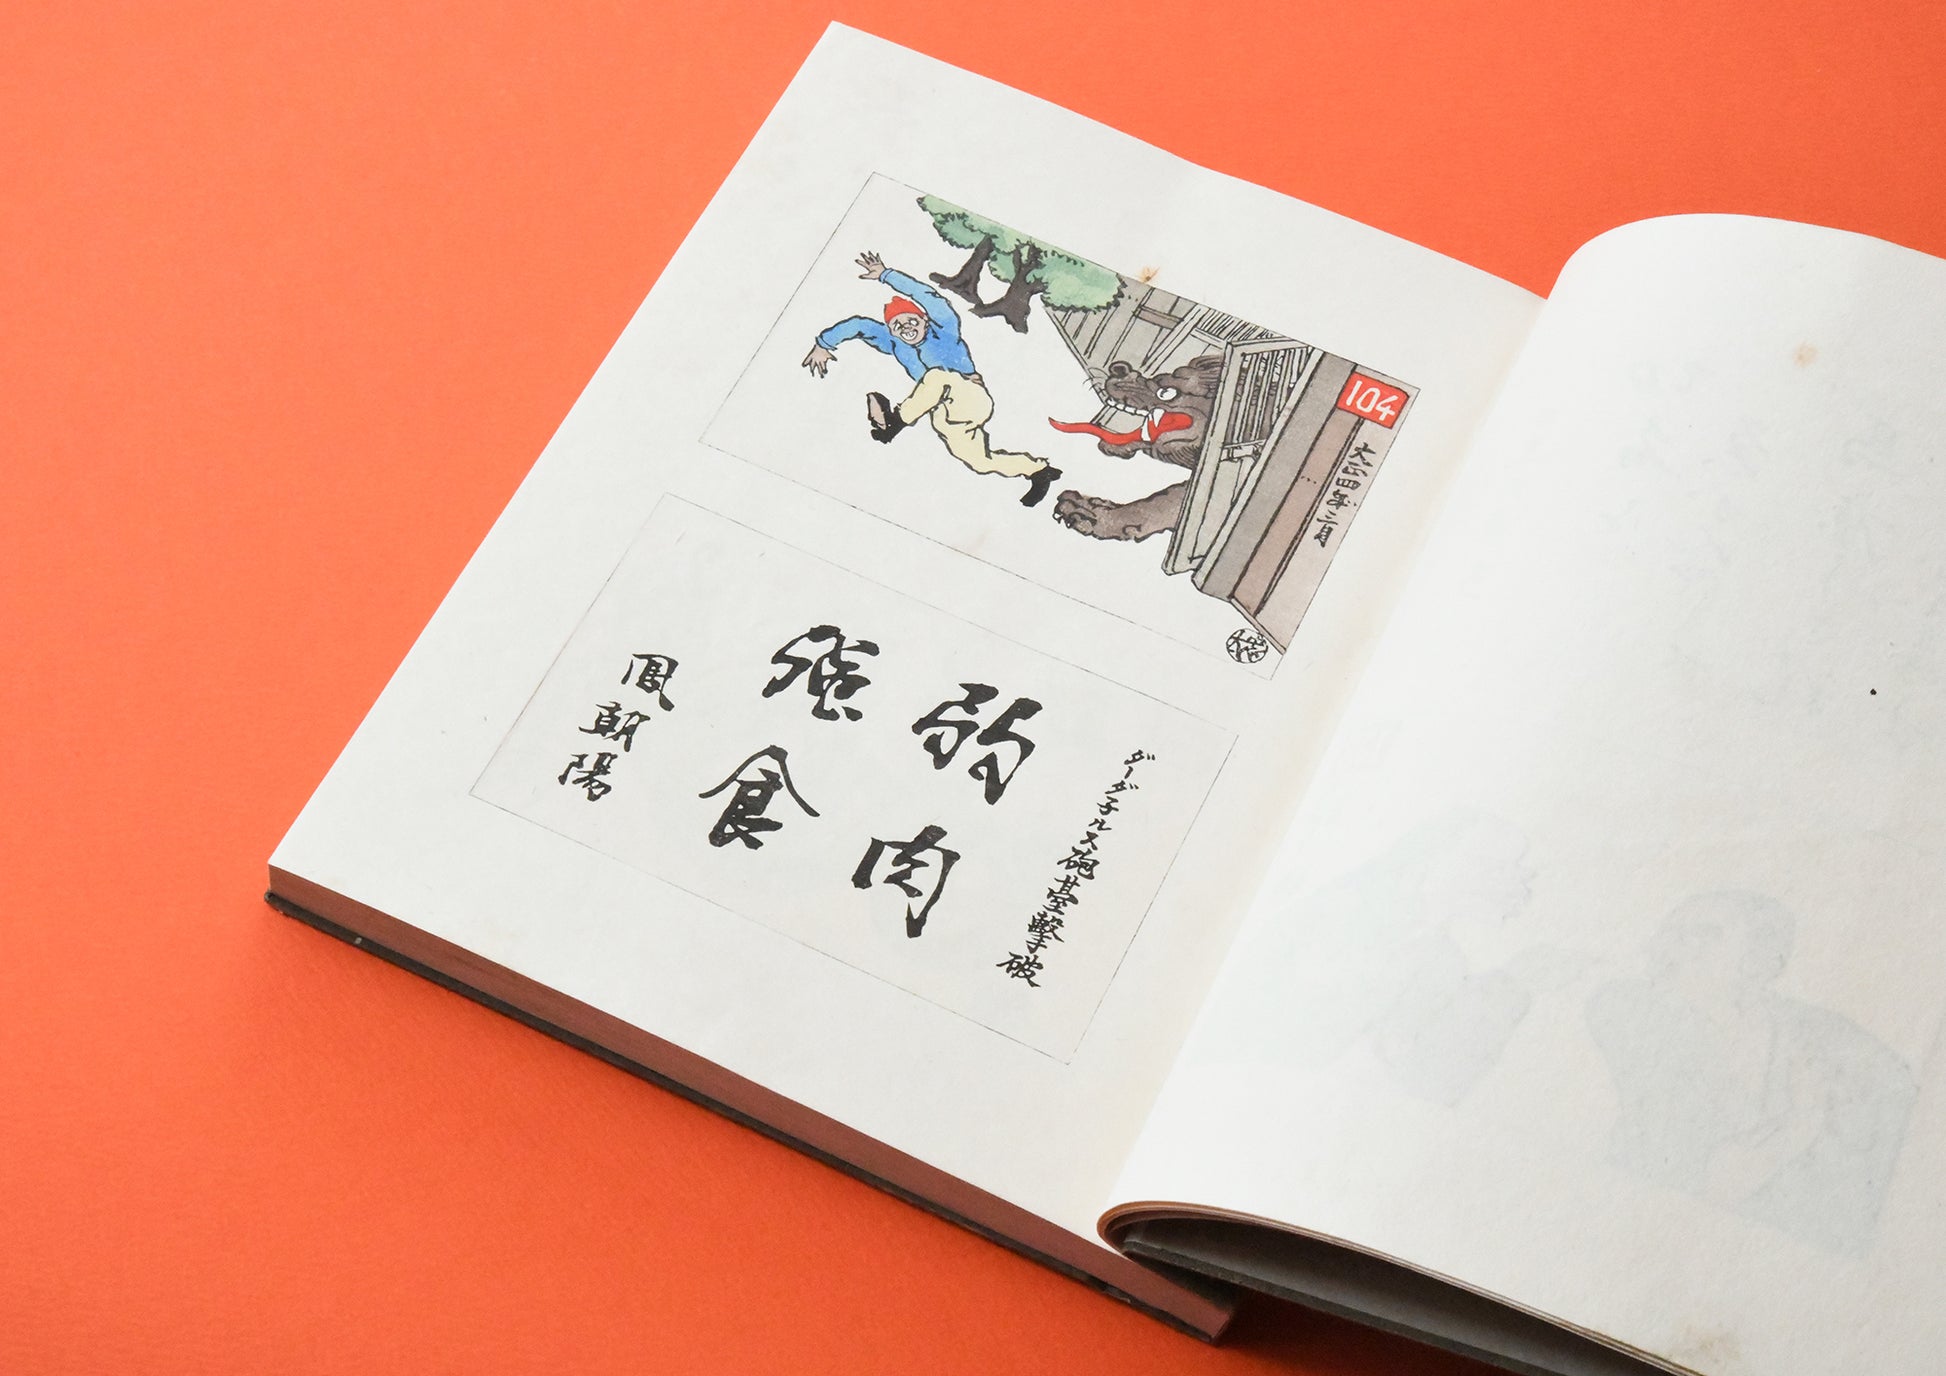 104
大正四年三月
ダーダネルス砲臺擊破
弱肉
強食
鳳朝陽